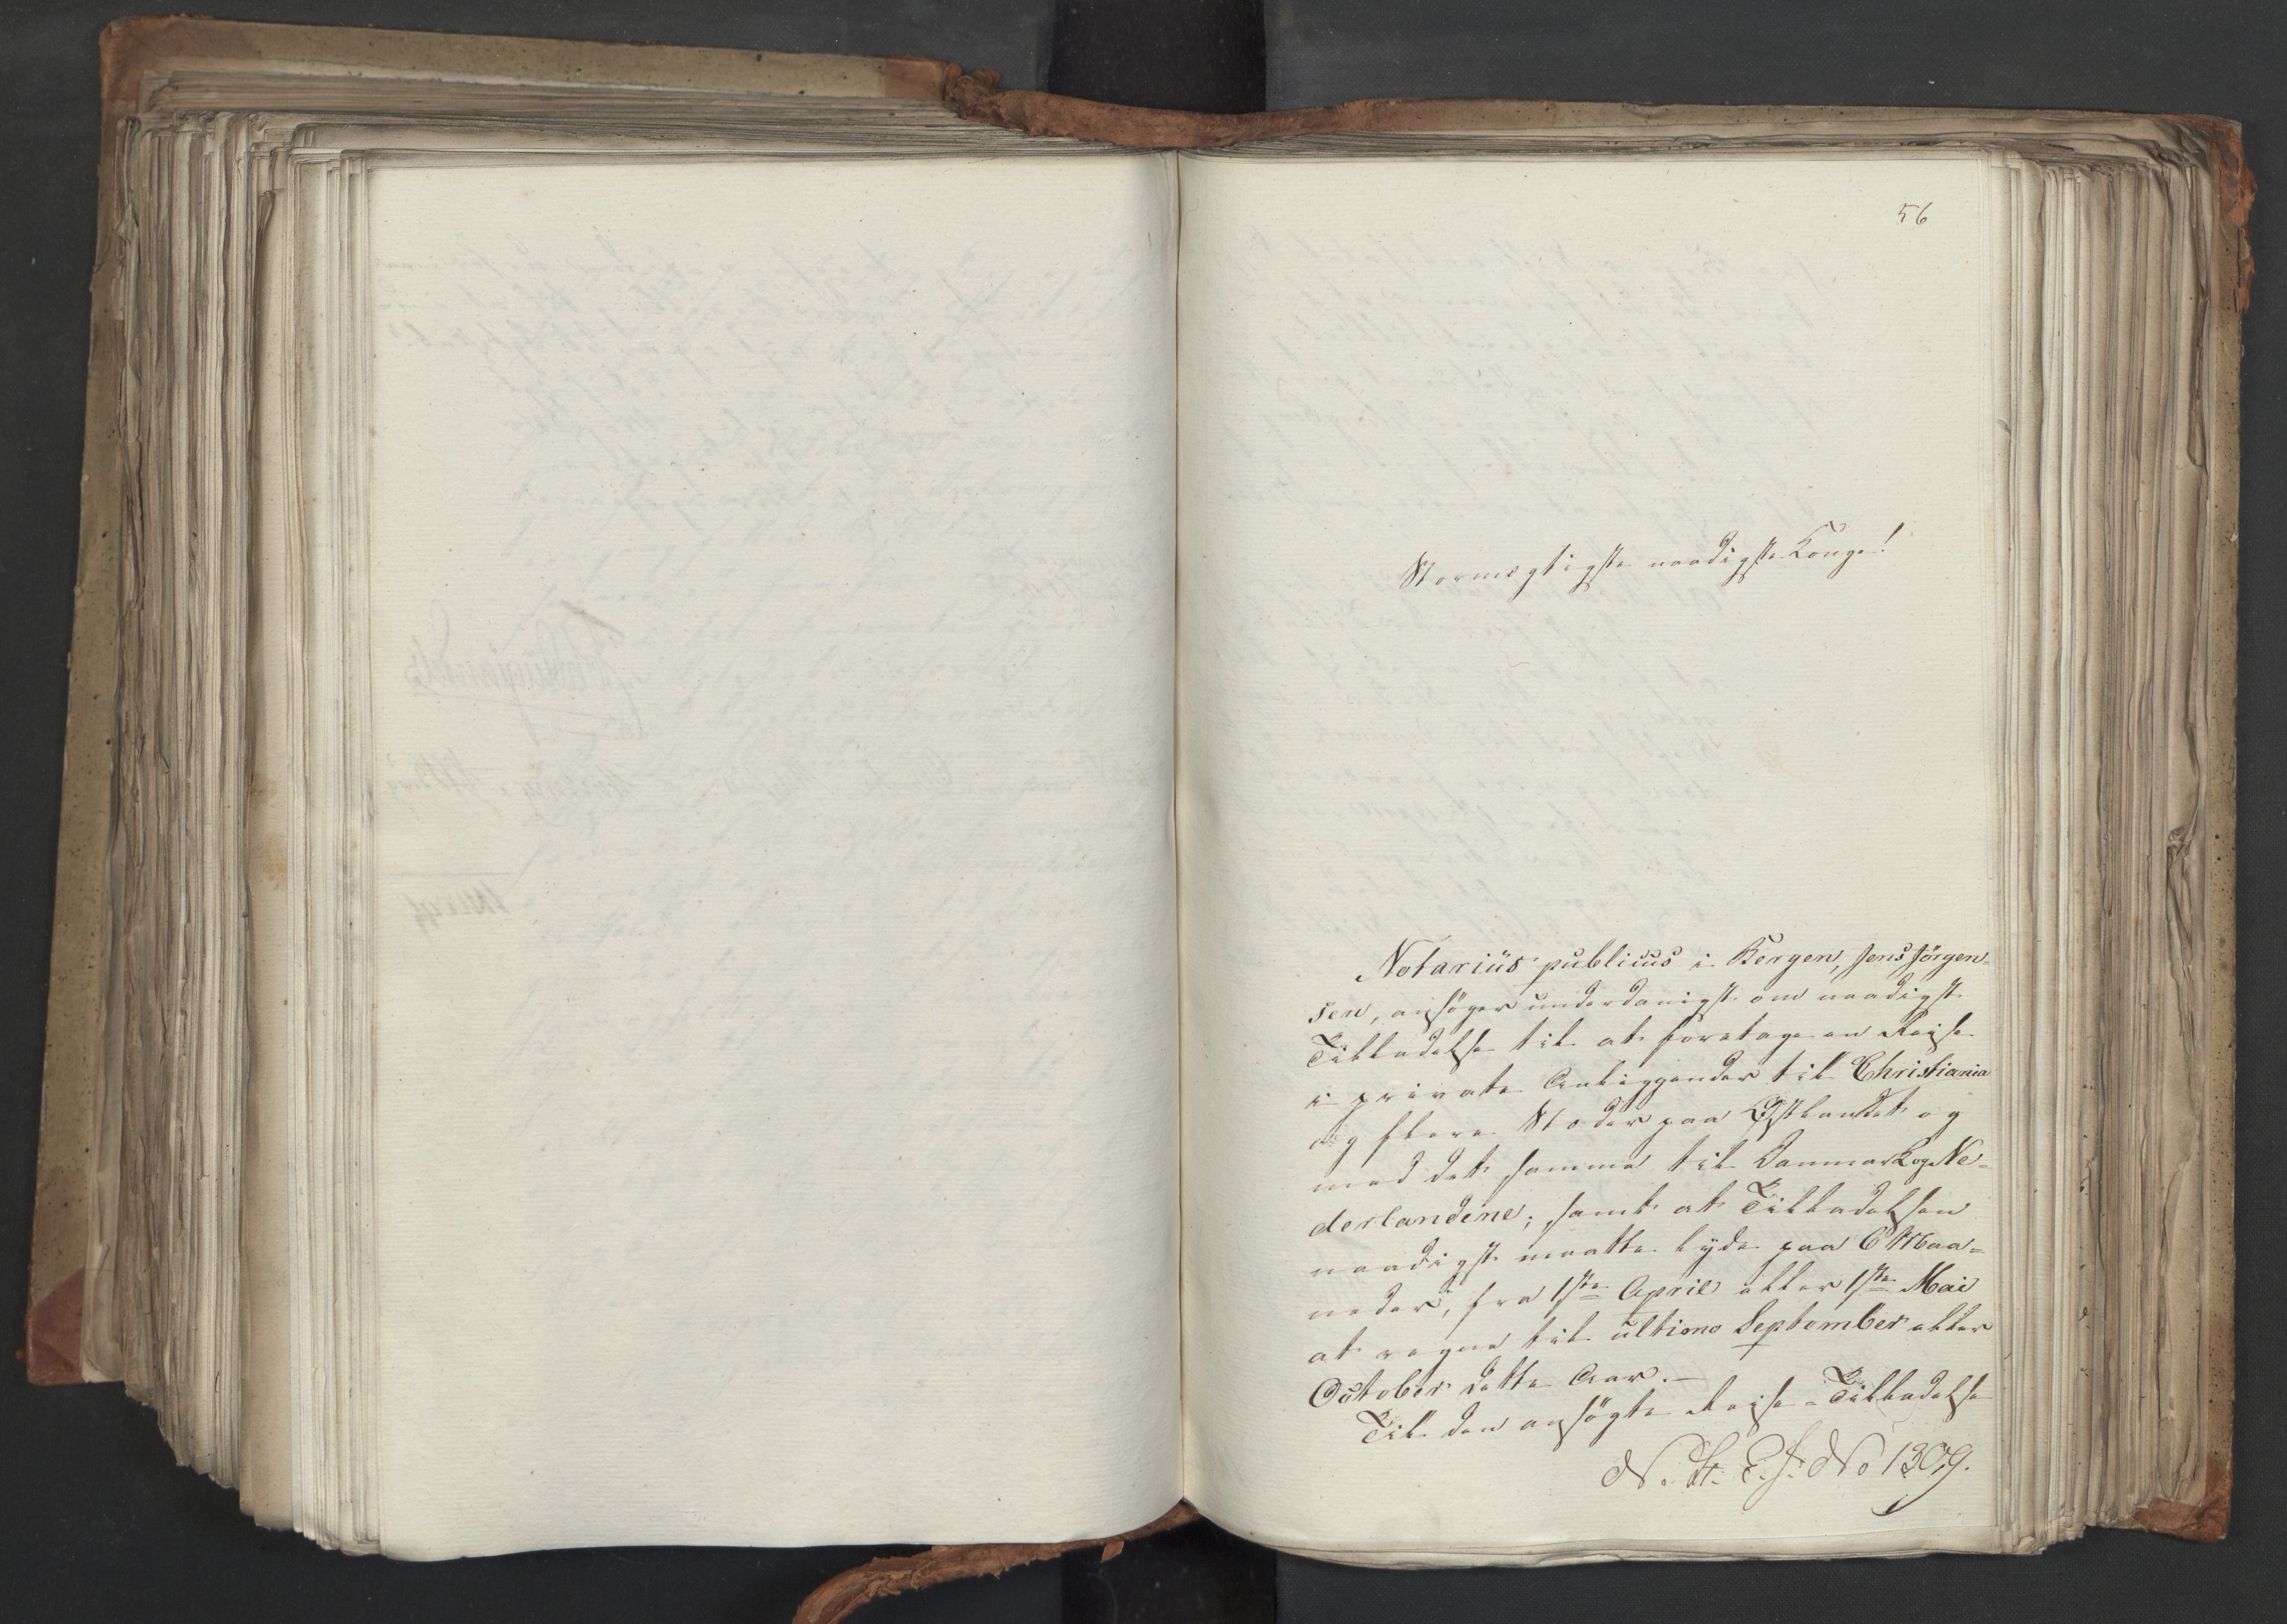 56
Stormægtigste naadigste Konge!
Notarius publicus i Bergen, Jens Jörgen-
sen, ansöger underdanigst om naadigst
Tilladelse til at foretage en Reise
i private Anliggender til Christiania
og flere Steder paa Östlandet og
med det samme til Danmark og Ne-
derlandene; samt at Tilladelsen
naadigst maatte lyde paa 6 Maa-
neder, fra 1ste April eller 1ste Mai
at regne til ultimo September eller
October dette Aar.—
Til den ansögte Reise-Tilladelse
N. St. E. J. No 1309.